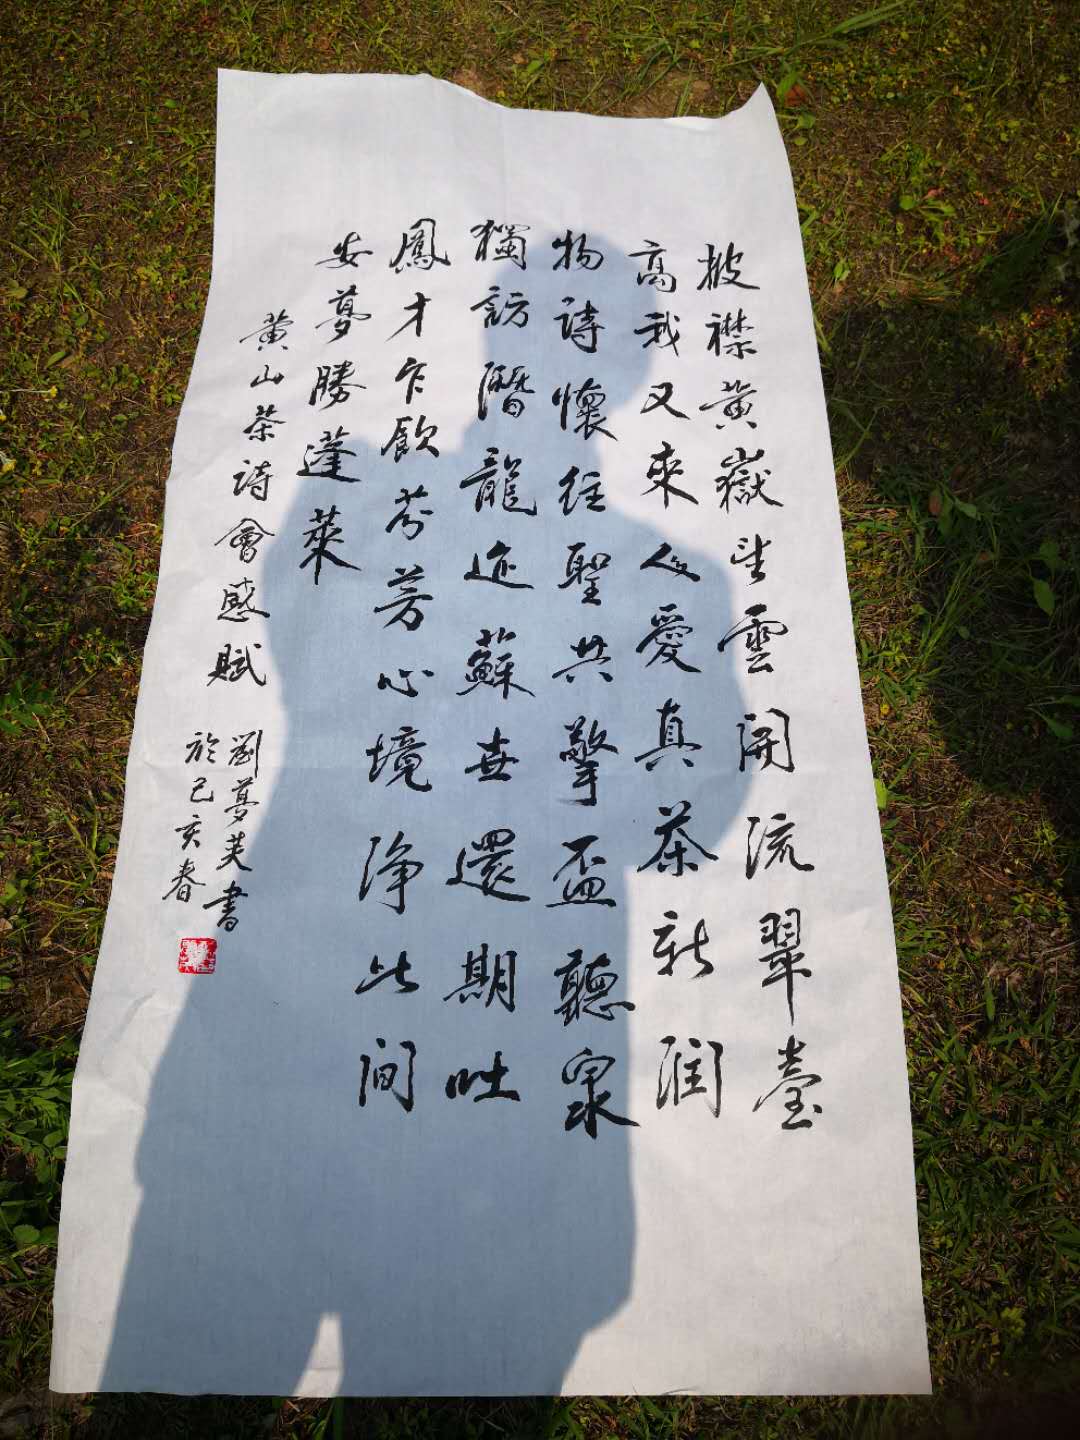 披襟黃嶽望雲開流翠臺
高我又來人愛真茶新潤
物詩懷往聖共擎盃聽泉
獨訪潛龍迹蘇世還期吐
鳳才乍飲芬芳心境淨此間
安夢勝蓬萊
黃山茶詩會感賦
劉夢芙書
於己亥春